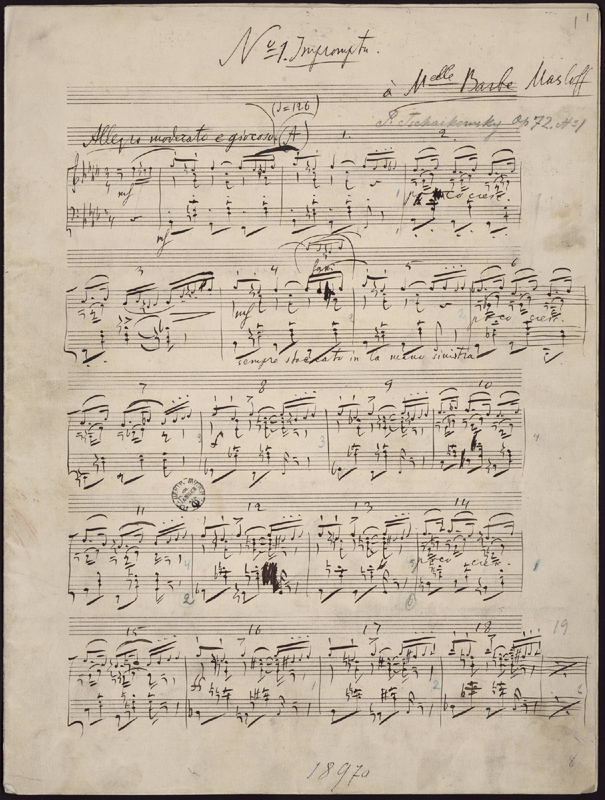 11
Nº 1. Impromptu.
à Melle Barbe Masloff
(♩=126)
P. Tschaikowsky Op 72. Nº 1
Allegro moderato e giocoso (A) 1. 2.
mf
poco cresc.
mf
3 4 5 6
mf poco cresc.
sempre staccato in la mano sinistra
7 8 9 10
3 3 4
11 12 13 14
poco cresc.
4 1
2
15 16 17 18 19
ff
1 2
1897a